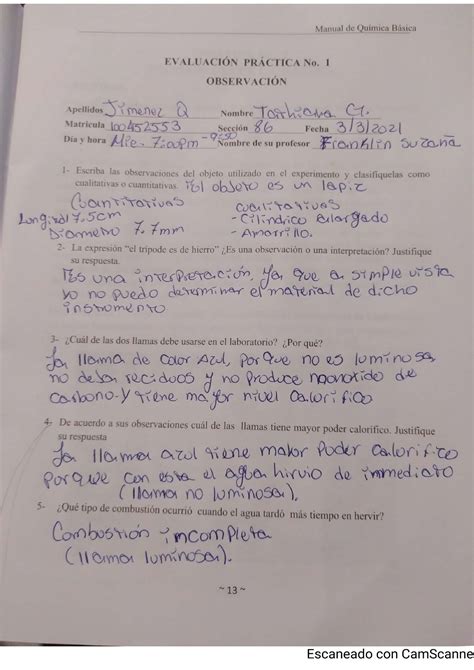 Manual de Química Básica
EVALUACIÓN PRÁCTICA No. 1
OBSERVACIÓN
Apellidos Jimenez Q Nombre G.
Matrícula 100452553 Sección 86 Fecha 3/3/2021
Día y hora Mie. 7:00pm -9:50 Nombre de su profesor Franklin
1- Escriba las observaciones del objeto utilizado en el experimento y clasifíquelas como
cualitativas o cuantitativas. El objeto es un lapiz
Cuantitativas cualitativas
Longitud 7.5cm - Cilindrico alargado
Diametro 7.7mm - Amarillo.
2- La expresión “el trípode es de hierro” ¿Es una observación o una interpretación? Justifique
su respuesta.
Es una interpretación, ya que a simple vista
yo no puedo determinar el material de dicho
instrumento
3- ¿Cuál de las dos llamas debe usarse en el laboratorio? ¿Por qué?
La llama de color azul, porque no es luminosa,
no deja reciduos y no produce monoxido de
carbono y tiene mayor nivel calorifico
4- De acuerdo a sus observaciones cuál de las llamas tiene mayor poder calorífico. Justifique
su respuesta
La llama azul tiene mayor poder calorifico
porque con esta el agua hirvio de immediato
(llama no luminosa).
5- ¿Qué tipo de combustión ocurrió cuando el agua tardó más tiempo en hervir?
Combustión incompleta
(llama luminosa).
~ 13 ~
Escaneado con CamScanne